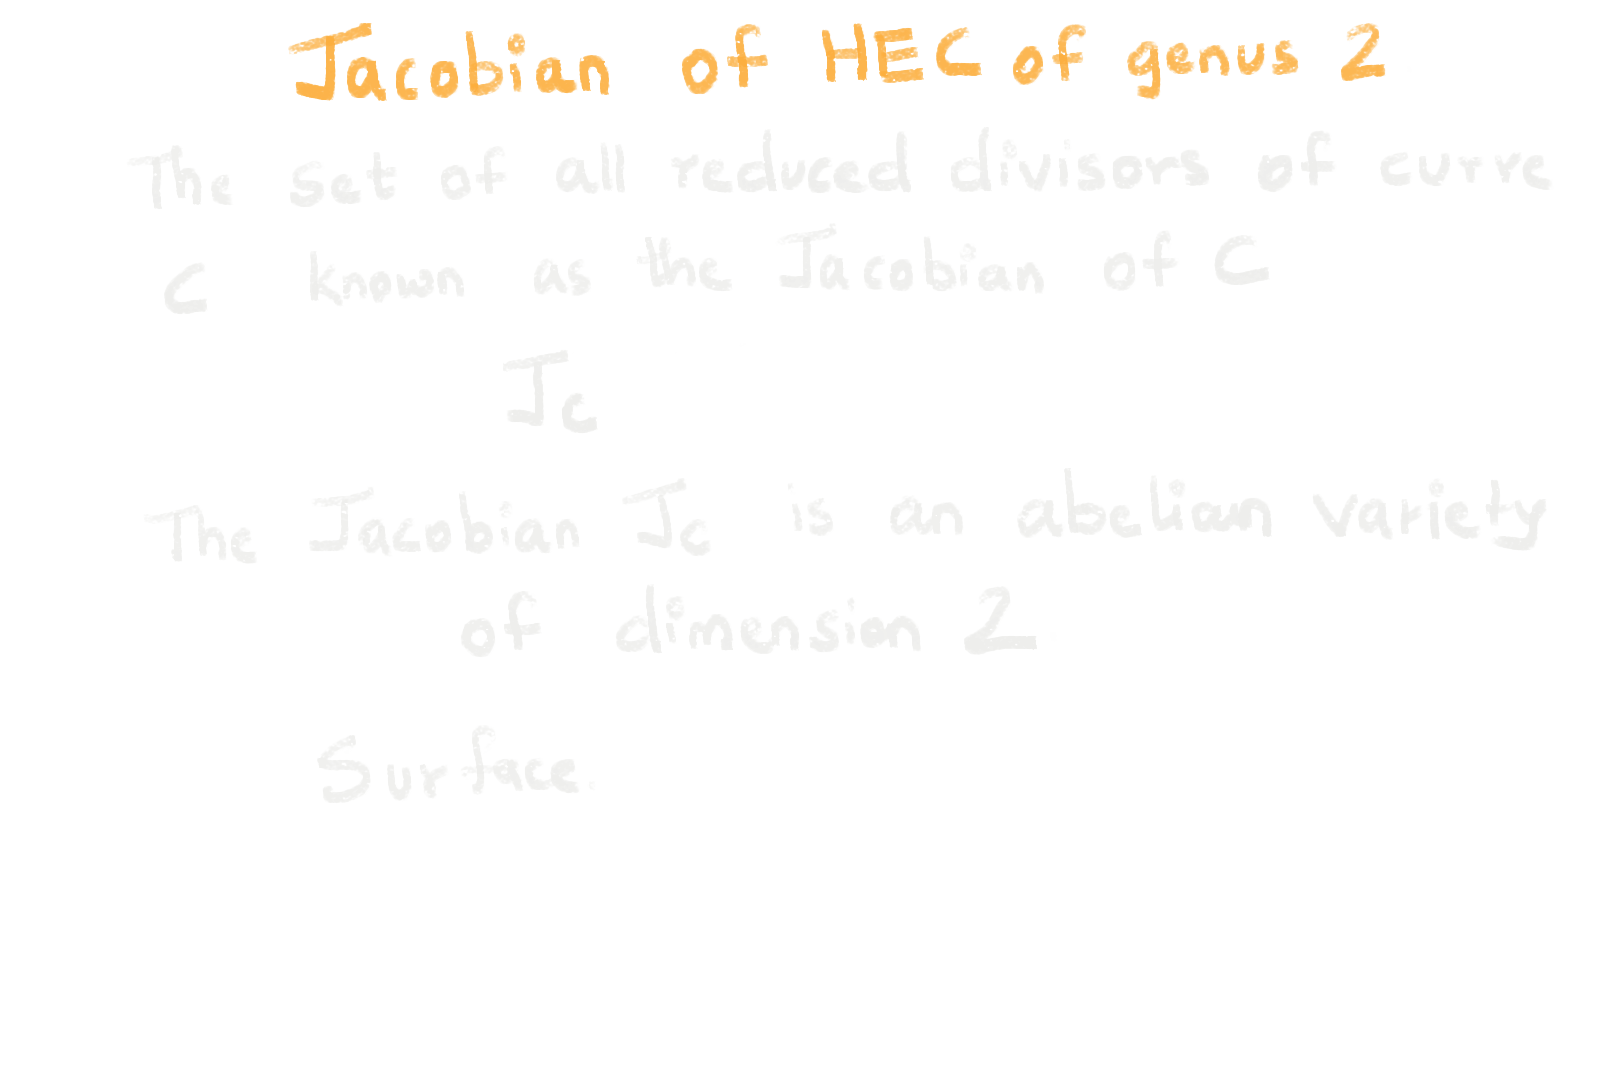 Jacobian of HEC of genus 2
The set of all reduced divisors of curve
C known as the Jacobian of C
Jc
The Jacobian Jc is an abelian variety
of dimension 2
Surface.